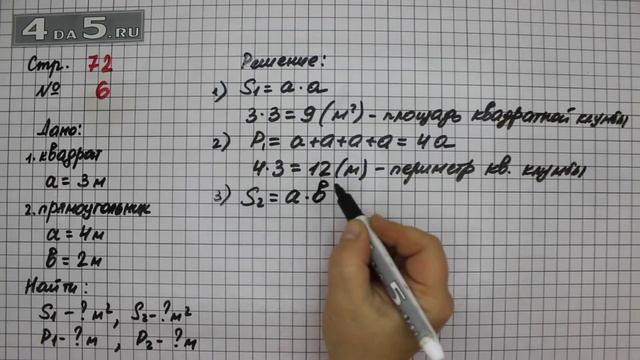 4 DA 5.RU
Стр. 72
№ 6
Дано:
1. квадрат
а = 3 м
2. прямоугольник
а = 4 м
в = 2 м
Найти:
S1 - ? м², S2 - ? м²
P1 - ? м, P2 - ? м
Решение:
1) S1 = а · а
3 · 3 = 9 (м²) - площадь квадратной клумбы
2) P1 = а + а + а + а = 4а
4 · 3 = 12 (м) - периметр кв. клумбы
3) S2 = а · в